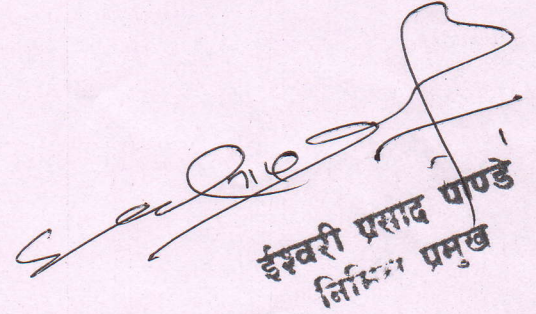 ईश्वरी प्रसाद पाण्डे
निमित्त प्रमुख